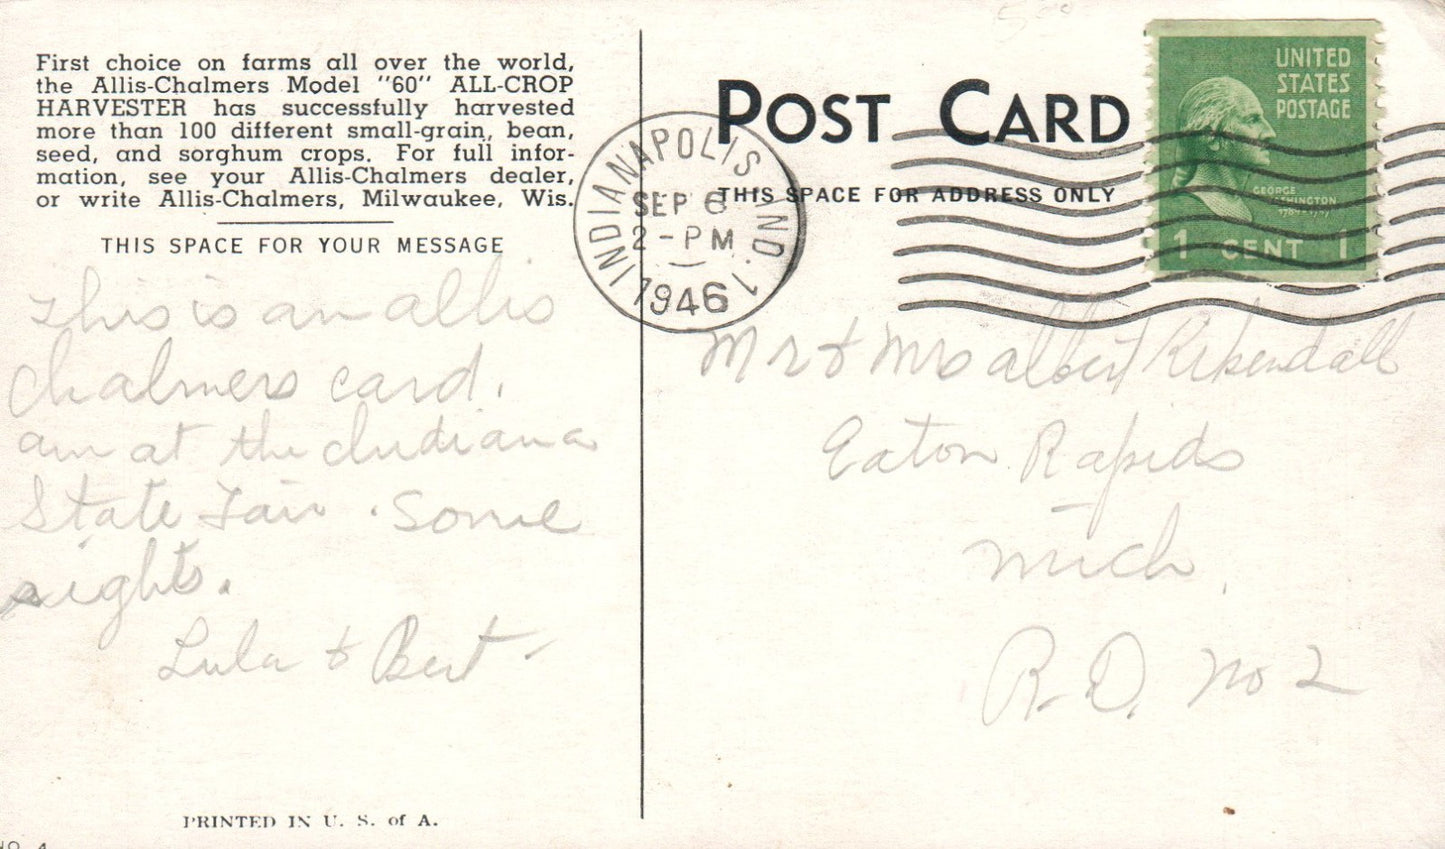 First choice on farms all over the world,
the Allis-Chalmers Model "60" ALL-CROP
HARVESTER has successfully harvested
more than 100 different small-grain, bean,
seed, and sorghum crops. For full infor-
mation, see your Allis-Chalmers dealer,
or write Allis-Chalmers, Milwaukee, Wis.
THIS SPACE FOR YOUR MESSAGE
This is an allis
Chalmers card.
am at the Indiana
State Fair. Some
sights.
Lula & Bert
PRINTED IN U. S. of A.
NO. 4
POST CARD
THIS SPACE FOR ADDRESS ONLY
INDIANAPOLIS IND. 1
SEP 6
2 - PM
1946
UNITED
STATES
POSTAGE
GEORGE
WASHINGTON
1 CENT 1
Mr & Mrs albert
Eaton Rapids
Mich.
R. D. No 2